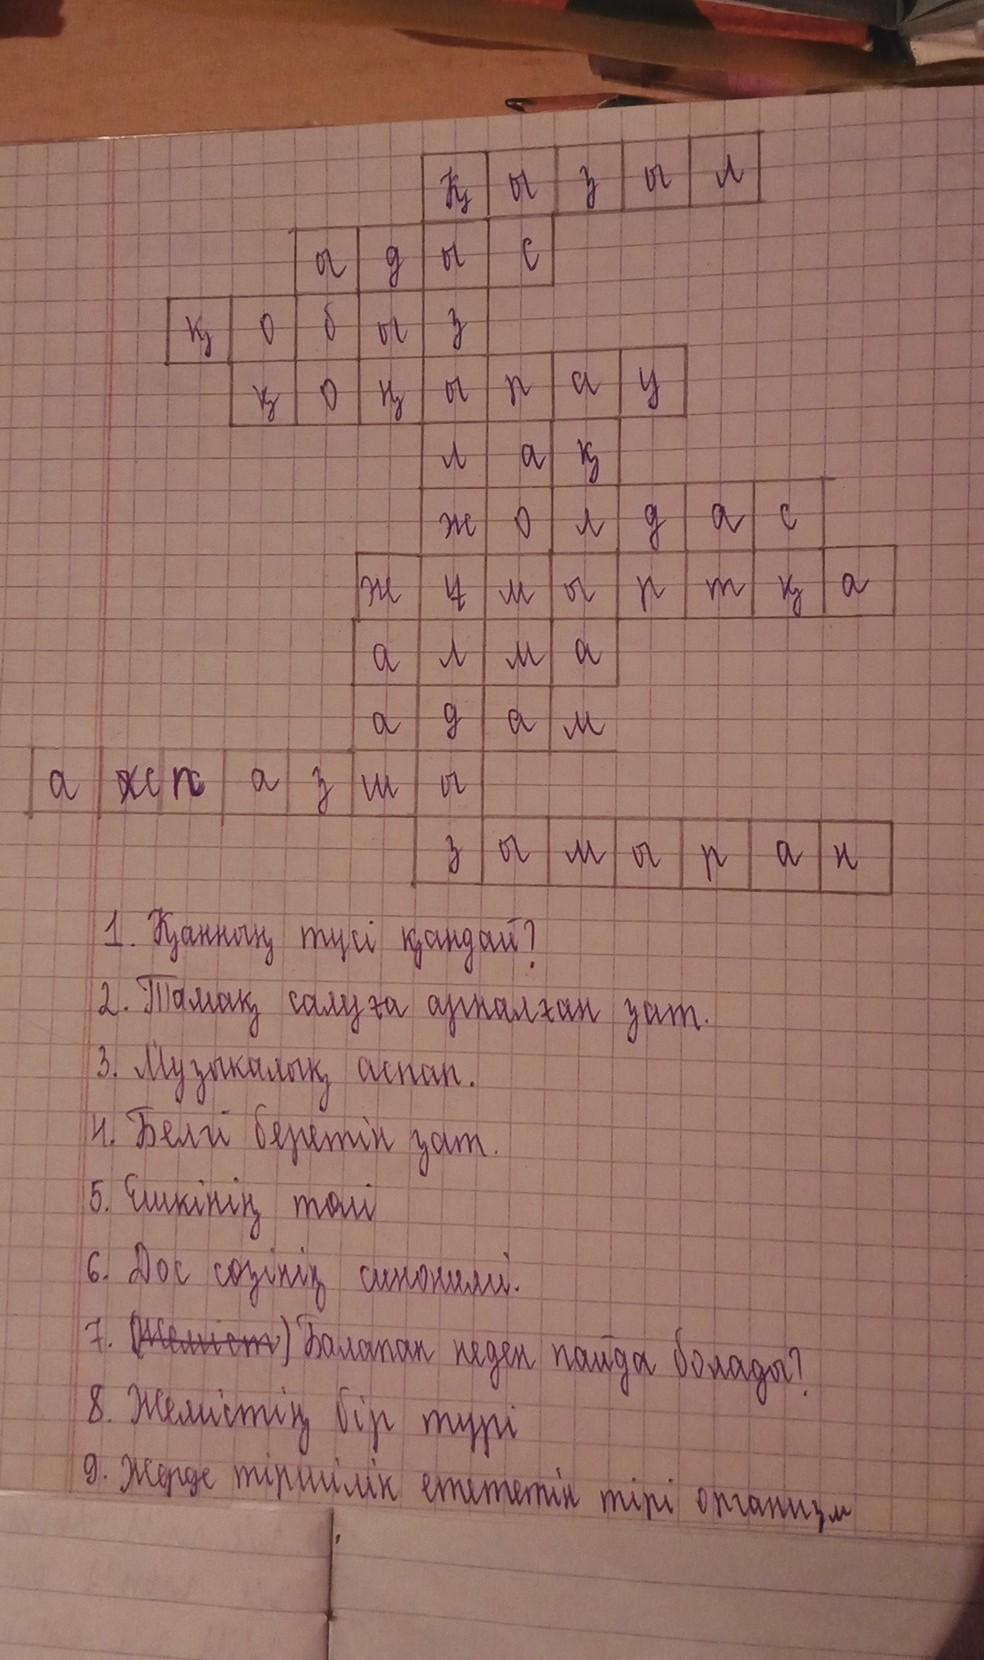 қызыл
ыдыс
қобыз
қоңырау
лақ
жолдас
жұмыртқа
алма
адам
аспазшы
зымыран
1. Қанның түсі қандай?
2. Тамақ салуға арналған зат.
3. Музыкалық аспап.
4. Белгі беретін зат.
5. Ешкінің төлі
6. Дос сөзінің синонимі.
7. (Жеміст) Балапан неден пайда болады?
8. Жемістің бір түрі
9. Жерде тіршілік етететін тірі организм